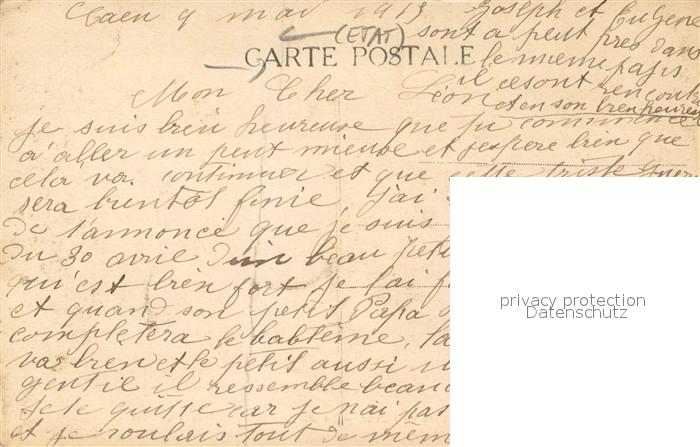 Caen 9 mai 1915
Joseph et Eugene
sont a peut pres dans
le meme pays
il ce sont rencontr
et en son bien heureu
(ETAT)
CARTE POSTALE
Mon Cher Léon
je suis bien heureuse que tu commence
a aller un peut mieux et j'espere bien que
cela va continuer et que cette triste guer
sera bientot finie j'ai
de t'annonce que je suis
du 30 avril d'un beau petit
qui est bien fort je l'ai f
et quand son petit Papa
completera le babteme, ta
va bien et le petit aussi il
gentil il ressemble beauc
Je te quitte car je n'ai pas
et je voulais tout de mem
privacy protection
Datenschutz